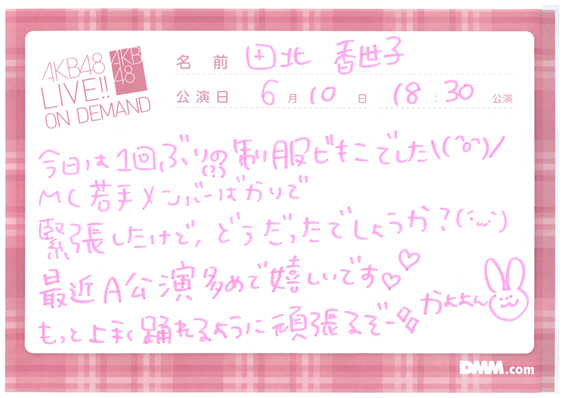 AKB48
LIVE!!
ON DEMAND
AKB
48
名前 田北 香世子
公演日 6月10日 18:30 公演
今日は1回ぶりの制服ビもこでした\(^o^)/
(?)
MC若手メンバーばかりで
緊張したけど、どうだったでしょうか?(・ω・)
最近A公演多めで嬉しいです♡♡
もっと上手く踊れるように頑張るぞー
かよよん
DMM.com